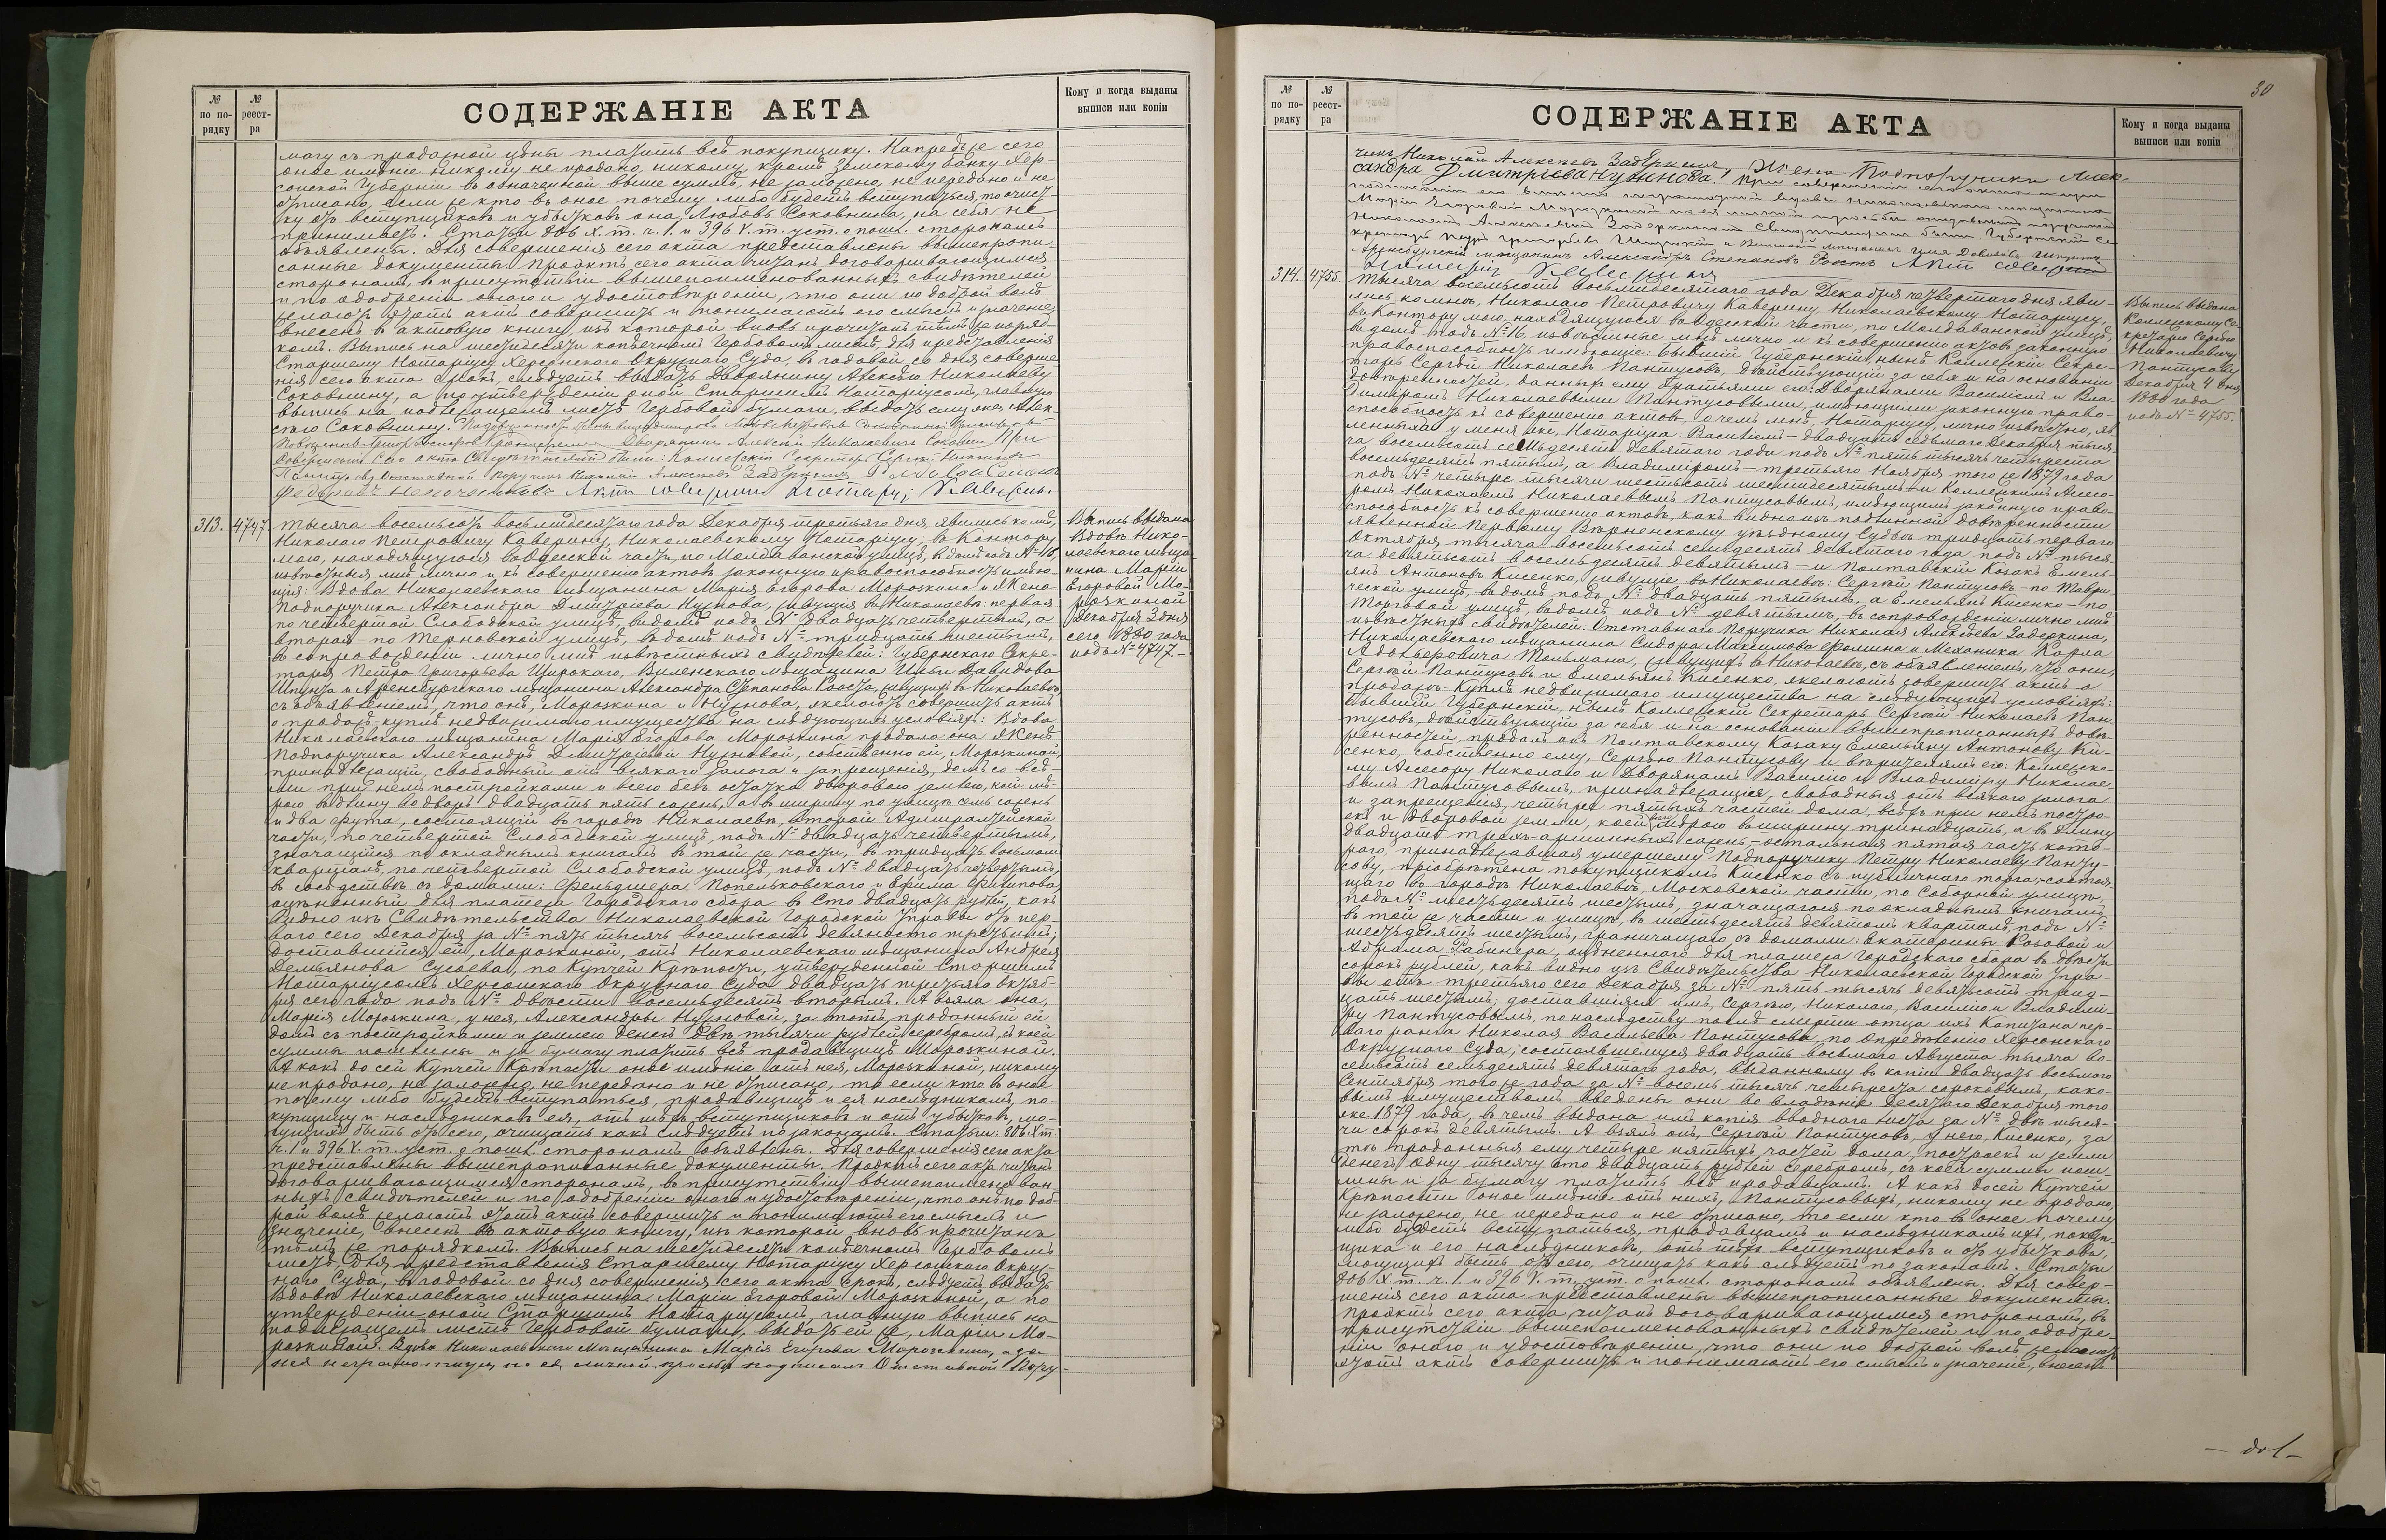 № по по-рядку
№ реест-ра
СОДЕРЖАНІЕ АКТА
Кому и когда выданы выписи или копіи
магу съ продажной цѣны платить всѣ покупщику. Напредь же сего
оное имѣніе никому не продано, никому, кромѣ Земскому банку Хер-
сонской Губерніи въ означенной выше суммѣ, не заложено, не передано и не
описано, если же кто въ оное почему либо будетъ вступаться, то очист-
ку отъ вступщиковъ и убытковъ она, Любовь Соковнина, на себя не
принимаетъ. Статьи 806 X. т. ч. 1. и 396 V. т. уст. о пошл. сторонамъ
объявлены. Для совершенія сего акта представлены вышепропи-
санные документы. Проэктъ сего акта читанъ договаривающимся
сторонамъ, въ присутствіи вышепоименованныхъ свидѣтелей
и по одобреніи онаго и удостовѣреніи, что они по доброй волѣ
желаютъ этотъ актъ совершить и понимаютъ его смыслъ и значеніе,
внесенъ въ актовую книгу, изъ которой вновь прочитанъ тѣмъ же поряд-
комъ. Выпись на шестидесяти копѣечномъ Гербовомъ листѣ, для представленія
Старшему Нотаріусу Херсонскаго Окружнаго Суда, въ годовой со дня соверше-
нія сего акта срокъ, слѣдуетъ выдать Дворянину Алексѣю Николаеву
Соковнину, а по утвержденіи оной Старшимъ Нотаріусомъ, главную
выпись на подлежащемъ листѣ Гербовой бумаги, выдать ему же, Алек-
сѣю Соковнину.
Дворянинъ Алексѣй Николаевичъ Соковнинъ При
совершеніи сего акта свидѣтелями были: Коллежскій Секретарь Сергѣй Николаевъ
Отставной Поручикъ Николай Алексѣевъ Задеркинъ
Актъ совершилъ Нотаріусъ Каверинъ.
313. 4747.
Тысяча восемьсотъ восьмидесятаго года Декабря третьяго дня, явились ко мнѣ,
Николаю Петровичу Каверину, Николаевскому Нотаріусу, въ Контору
мою, находящуюся въ Одесской части, по Молдаванской улицѣ, въ домѣ подъ № 16,
извѣстныя мнѣ лично и къ совершенію актовъ законную правоспособность имѣю-
щія: Вдова Николаевскаго мѣщанина Марія Егорова Морозкина и Жена
Подпоручика Александра Дмитріева Нужнова, живущія въ Николаевѣ: первая
по четвертой Слободской улицѣ, въ домѣ подъ № двадцать четвертымъ, а
вторая – по Терновской улицѣ, въ домѣ подъ № тридцать шестымъ,
въ сопровожденіи лично мнѣ извѣстныхъ свидѣтелей: Губернскаго Секре-
таря Петра Григорьева Щирокаго, Виленскаго мѣщанина Ильи Давидова
Шпунта и Аренсбургскаго мѣщанина Александра Степанова Рооста, живущихъ въ Николаевѣ,
съ объявленіемъ, что онѣ, Морозкина и Нужнова, желаютъ совершить актъ
о продажѣ-куплѣ недвижимаго имущества на слѣдующихъ условіяхъ: Вдова
Николаевскаго мѣщанина Марія Егорова Морозкина продала она Женѣ
Подпоручика Александрѣ Дмитріевой Нужновой, собственно ей, Морозкиной,
принадлежащій, свободный отъ всякаго залога и запрещенія, домъ со всѣ-
ми при немъ постройками и всею безъ остатка дворовою землею, коей мѣ-
рою въ длину во дворъ двадцать пять сажень, а въ ширину по улицѣ семь сажень
и два фута, состоящій въ городѣ Николаевѣ, второй Адмиралтейской
части, по четвертой Слободской улицѣ, подъ № двадцать четвертымъ,
значащійся по окладнымъ книгамъ въ той же части, въ тридцать восьмомъ
кварталѣ, по четвертой Слободской улицѣ, подъ № двадцать четвертымъ,
въ сосѣдствѣ съ домами: Фельдшера Попельковскаго и Ефима Филипова,
оцѣненный для платежа Городскаго сбора въ Сто двадцать рублей, какъ
видно изъ Свидѣтельства Николаевской Городской Управы отъ пер-
ваго сего Декабря за № пять тысячъ восемьсотъ девяносто третьимъ;
доставшійся ей, Морозкиной, отъ Николаевскаго мѣщанина Андрея
Демьянова Сусоева, по Купчей Крѣпости, утвержденной Старшимъ
Нотаріусомъ Херсонскаго Окружнаго Суда двадцать третьяго Октяб-
ря сего года подъ № двѣсти восемьдесятъ вторымъ. А взяла она,
Марія Морозкина, у нея, Александры Нужновой, за тотъ, проданный ей
домъ съ постройками и землею денегъ Двѣ тысячи рублей серебромъ, съ коей
суммы пошлины и за бумагу платить всѣ продавщицѣ Морозкиной.
А какъ до сей Купчей Крѣпости оное имѣніе отъ нея, Морозкиной, никому
не продано, не заложено, не передано и не описано, то если кто въ оное
почему либо будетъ вступаться, продавщицѣ и ея наслѣдникамъ, по-
купщицу и наслѣдниковъ ея, отъ тѣхъ вступщиковъ и отъ убытковъ, мо-
гущихъ быть отъ сего, очищать какъ слѣдуетъ по законамъ. Статьи: 806 X т.
ч. 1 и 396 V. т. уст. о пошл. сторонамъ объявлены. Для совершенія сего акта
представлены вышепрописанные документы. Проэктъ сего акта читанъ
договаривающимся сторонамъ, въ присутствіи вышепоименован-
ныхъ свидѣтелей и по одобреніи онаго и удостовѣреніи, что онѣ по доб-
рой волѣ желаютъ этотъ актъ совершить и понимаютъ его смыслъ и
значеніе, внесенъ въ актовую книгу, изъ которой вновь прочитанъ
тѣмъ же порядкомъ. Выпись на шестидесяти копѣечномъ Гербовомъ
листѣ, для представленія Старшему Нотаріусу Херсонскаго Окруж-
наго Суда, въ годовой со дня совершенія сего акта срокъ, слѣдуетъ выдать
Вдовѣ Николаевскаго мѣщанина Маріи Егоровой Морозкиной, а по
утвержденіи оной Старшимъ Нотаріусомъ, главную выпись на
подлежащемъ листѣ Гербовой бумаги, выдать ей же, Маріи Мо-
розкиной. Вдова Николаевскаго Мещанина Марія Егорова Морозкина, а за
нея неграмотную, по ея личной просьбѣ подписалъ Отставной Пору-
Выпись выдана
Вдовѣ Нико-
лаевскаго мѣща-
нина Маріи
Егоровой Мо-
розкиной
Декабря 3 дня
сего 1880 года
подъ № 4747.-
30
№ по по-рядку
№ реест-ра
СОДЕРЖАНІЕ АКТА
Кому и когда выданы выписи или копіи
чикъ Николай Алексѣевъ Задеркинъ. Жена Подпоручика Алек-
сандра Дмитріева Нужнова. При совершеніи сего акта и при
подписаніи его вмѣсто неграмотной вдовы Николаевскаго мещанина
Маріи Егоровой Морозкиной по ея личной просьбѣ отставнымъ поручикомъ
Николаемъ Алексѣевымъ Задеркинымъ Свидѣтелями были: Губернскій се-
кретарь Петръ Григорьевъ Щирокій и Виленскій мѣщанинъ Илья Давидовъ Шпунтъ
Аренсбургскій мѣщанинъ Александръ Степановъ Роостъ Актъ совершилъ
Нотаріусъ Каверинъ
314. 4755.
Тысяча восемьсотъ восьмидесятаго года Декабря четвертаго дня яви-
лись ко мнѣ, Николаю Петровичу Каверину, Николаевскому Нотаріусу,
въ Контору мою, находящуюся въ Одесской части, по Молдаванской улицѣ,
въ домѣ подъ № 16, извѣстные мнѣ лично и къ совершенію актовъ законную
правоспособность имѣющіе: бывшій Губернскій, нынѣ Коллежскій Секре-
тарь Сергѣй Николаевъ Пантусовъ, дѣйствующій за себя и на основаніи
довѣренностей, данныхъ ему братьями его: Дворянами Василіемъ и Вла-
диміромъ Николаевыми Пантусовыми, имѣющими законную право-
способность къ совершенію актовъ, о чемъ мнѣ, Нотаріусу, лично извѣстно, яв-
ленныхъ у меня же, Нотаріуса: Василіемъ – двадцать седьмаго Декабря тыся-
ча восемьсотъ семьдесятъ девятаго года подъ № пять тысячъ четыреста
восемьдесятъ пятымъ, а Владиміромъ – третьяго Ноября того же 1879 года
подъ № четыре тысячи шестьсотъ шестидесятымъ – и Коллежскимъ Ассесо-
ромъ Николаемъ Николаевымъ Пантусовымъ, имѣющимъ законную право-
способность къ совершенію актовъ, какъ видно изъ подлинной довѣренности
явленной Первому Вѣрненскому уѣздному Судьѣ тридцать перваго
Октября тысяча восемьсотъ семьдесятъ девятаго года подъ № тыся-
ча девятьсотъ восемьдесятъ девятымъ – и Полтавскій Козакъ Емель-
янъ Антоновъ Кисенко, живущіе въ Николаевѣ: Сергѣй Пантусовъ – по Таври-
ческой улицѣ, въ домѣ подъ № двадцать пятымъ, а Емельянъ Кисенко – по
Торговой улицѣ, въ домѣ подъ № девятымъ, въ сопровожденіи лично мнѣ
извѣстныхъ свидѣтелей: Отставнаго Поручика Николая Алексѣева Задеркина,
Николаевскаго мѣщанина Сидора Максимова Фомина и Механика Карла
Адольферовича Тольмана, живущихъ въ Николаевѣ, съ объявленіемъ, что они,
Сергѣй Пантусовъ и Емельянъ Кисенко, желаютъ совершить актъ о
продажѣ-куплѣ недвижимаго имущества на слѣдующихъ условіяхъ:
Бывшій Губернскій, нынѣ Коллежскій Секретарь Сергѣй Николаевъ Пан-
тусовъ, дѣйствующій за себя и на основаніи вышепрописанныхъ довѣ-
ренностей, продалъ онъ Полтавскому Козаку Емельяну Антонову Ки-
сенко, собственно ему, Сергѣю Пантусову и вѣрителямъ его: Коллежско-
му Ассесору Николаю и Дворянамъ Василію и Владиміру Николае-
вымъ Пантусовымъ, принадлежащія, свободныя отъ всякаго залога
и запрещенія, четыре пятыхъ частей дома, всѣхъ при немъ постро-
екъ и дворовой земли, коей мѣрою въ ширину тринадцать, а въ длину
двадцать трехъ-аршинныхъ сажень – остальная пятая часть кото-
раго, принадлежавшая умершему Подпоручику Петру Николаеву Панту-
сову, пріобрѣтена покупщикомъ Кисенко съ публичнаго торга, – состоя-
щаго въ городѣ Николаевѣ, Московской части, по Соборной улицѣ,
подъ № шестьдесятъ шестымъ, значащагося по окладнымъ книгамъ
въ той же части и улицѣ, въ шестьдесятъ девятомъ кварталѣ, подъ №
шестьдесятъ шестымъ, граничащаго съ домами: Екатерины Розовой и
Абрама Рабинера, оцѣненнаго для платежа Городскаго сбора въ двѣсти
сорокъ рублей, какъ видно изъ Свидѣтельства Николаевской Городской Упра-
вы отъ третьяго сего Декабря за № пять тысячъ девятьсотъ трид-
цать шестымъ; доставшіяся имъ, Сергѣю, Николаю, Василію и Владимі-
ру Пантусовымъ, по наслѣдству послѣ смерти отца ихъ Капитана пер-
ваго ранга Николая Васильева Пантусова, по Опредѣленію Херсонскаго
Окружнаго Суда, состоявшемуся двадцать восьмаго Августа тысяча во-
семьсотъ семьдесятъ девятаго года, выданному въ копіи двадцать восьмаго
Сентября того же года за № восемь тысячъ четыреста сороковымъ, како-
вымъ имуществомъ введены они во владѣніе Десятаго Декабря того
же 1879 года, въ чемъ выдана имъ копія вводнаго листа за № двѣ тыся-
чи сорокъ девятымъ. А взялъ онъ, Сергѣй Пантусовъ, у него, Кисенко, за
тѣ проданныя ему четыре пятыхъ частей дома, построекъ и земли
денегъ Одну тысячу сто двадцать рублей серебромъ, съ коей суммы пош-
лины и за бумагу платить всѣ продавцамъ. А какъ до сей Купчей
Крѣпости оное имѣніе отъ нихъ, Пантусовыхъ, никому не продано,
не заложено, не передано и не описано, то если кто въ оное почему
либо будетъ вступаться, продавцамъ и наслѣдникамъ ихъ, покуп-
щика и его наслѣдниковъ, отъ тѣхъ вступщиковъ и отъ убытковъ,
могущихъ быть отъ сего, очищать какъ слѣдуетъ по законамъ. Статьи
806 X т. ч. 1. и 396 V. т. уст. о пошл. сторонамъ объявлены. Для совер-
шенія сего акта представлены вышепрописанные документы.
Проэктъ сего акта, читанъ договаривающимся сторонамъ, въ
присутствіи вышепоименованныхъ свидѣтелей и по одобре-
ніи онаго и удостовѣреніи, что они по доброй волѣ желаютъ
этотъ актъ совершить и понимаютъ его смыслъ и значеніе, внесенъ
Выпись выдана
Коллежскому Се-
кретарю Сергѣю
Николаевичу
Пантусову
Декабря 4 дня
1880 года
подъ № 4755.